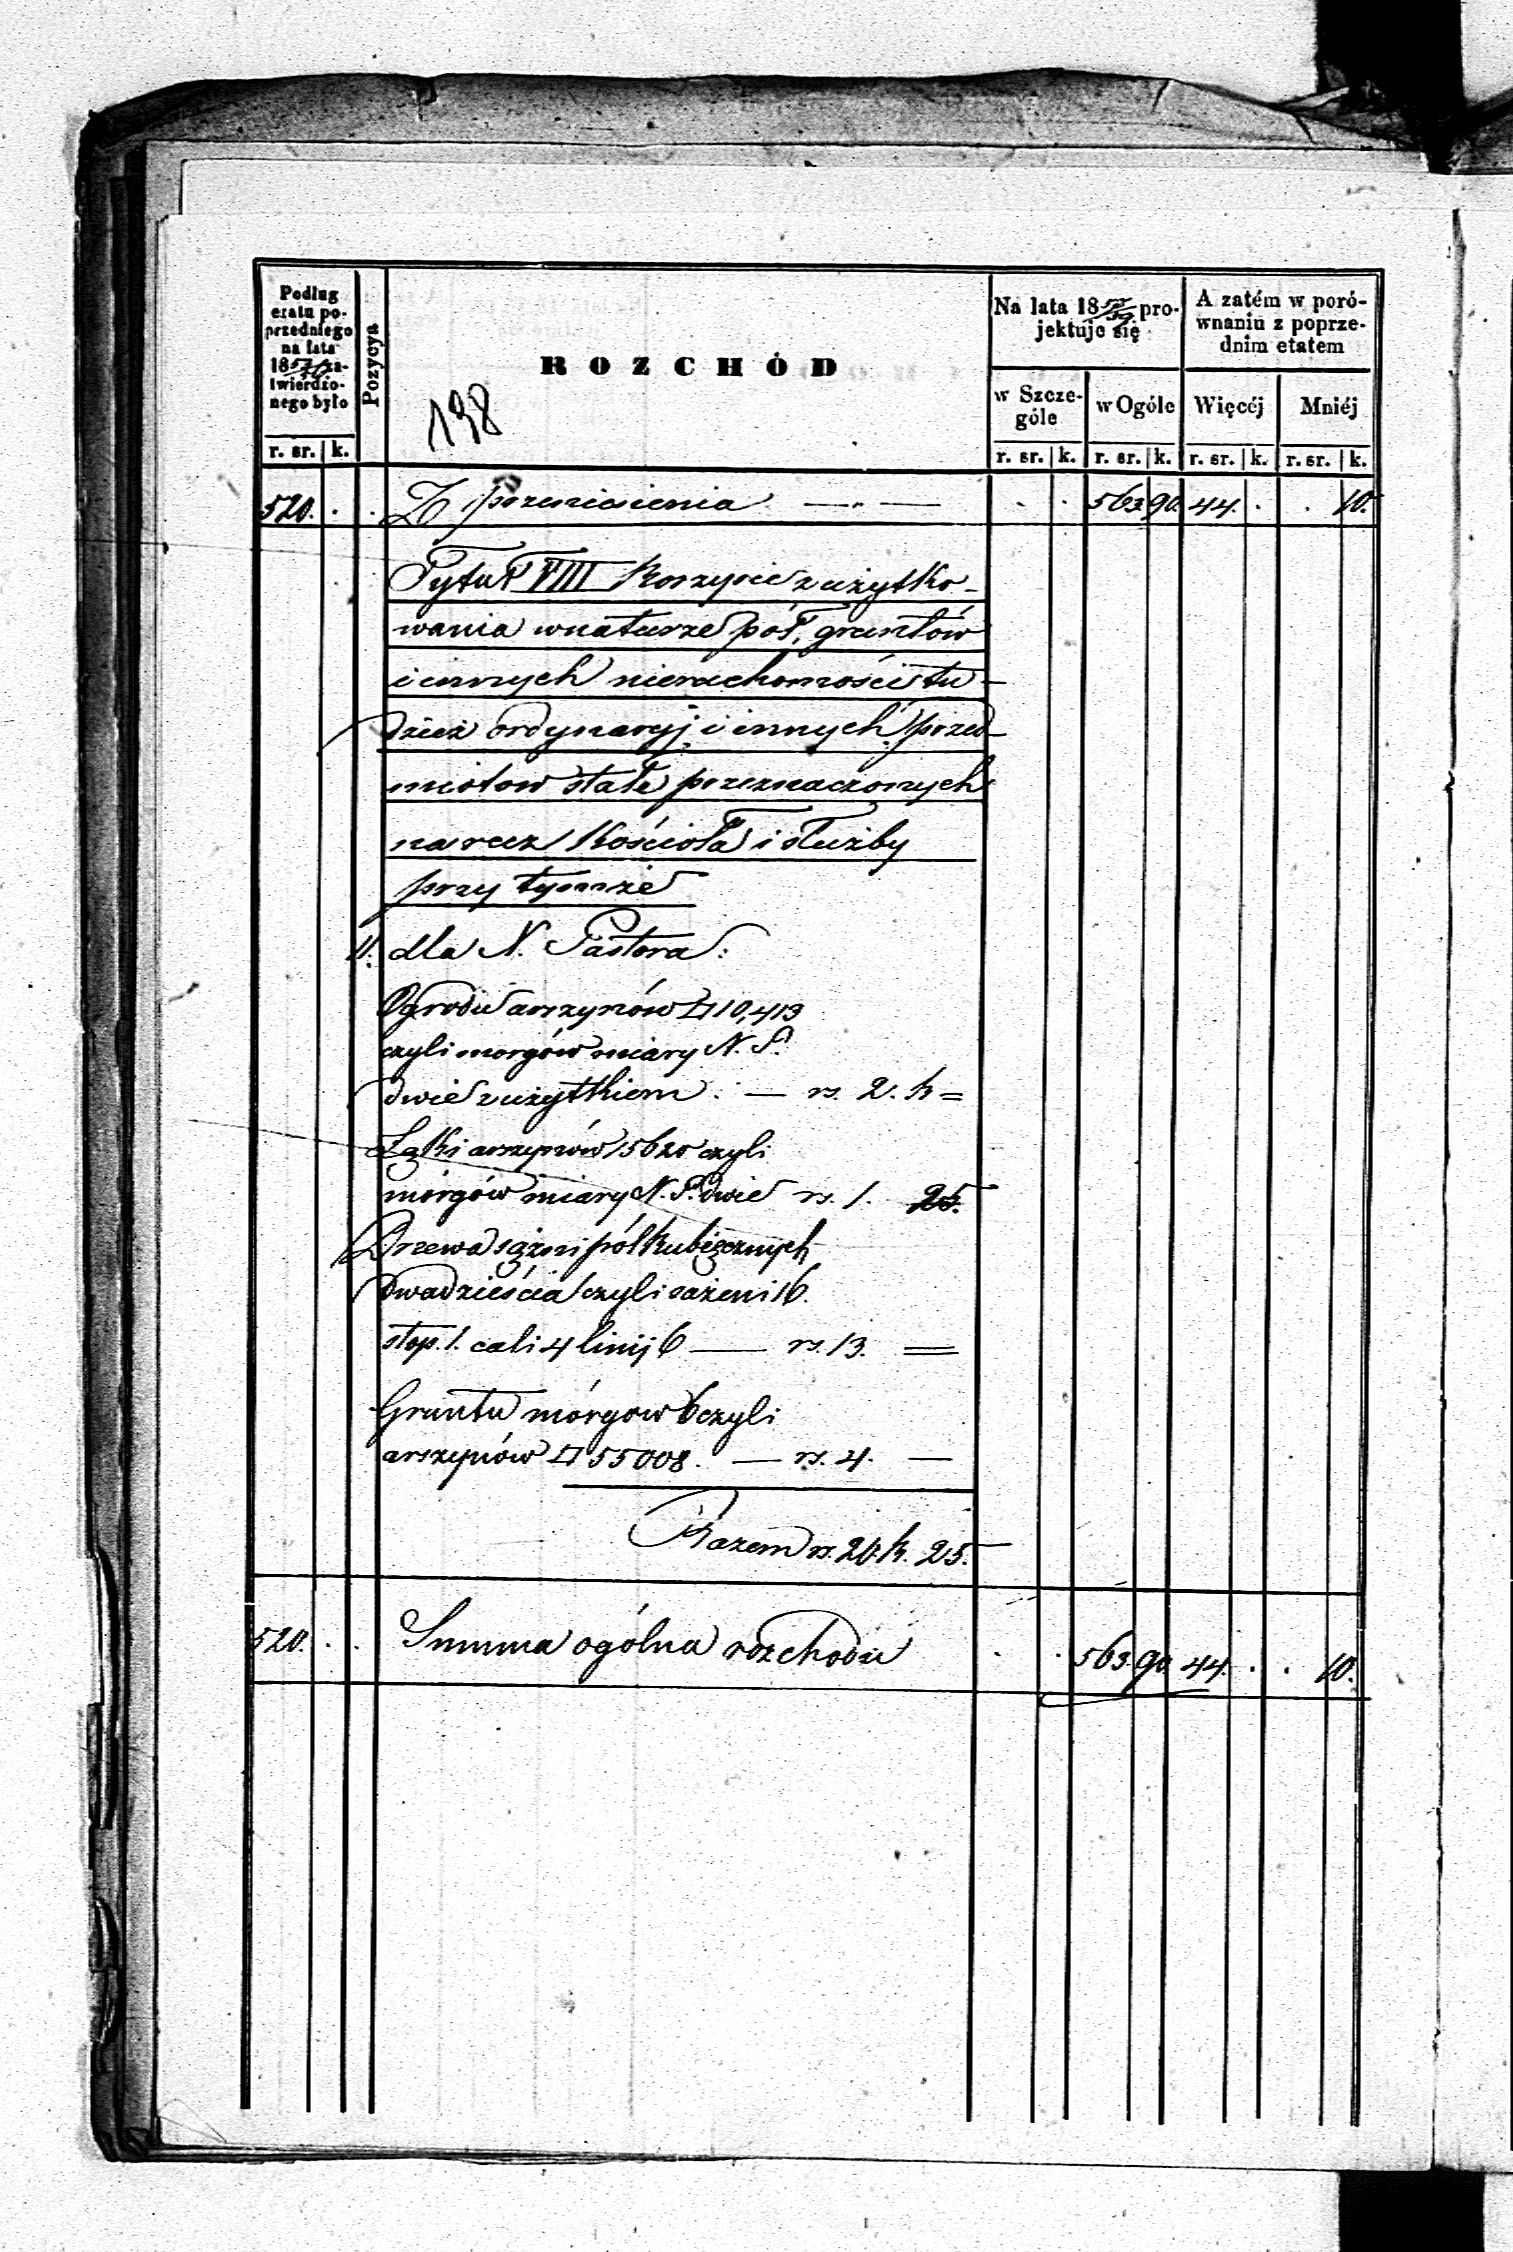 Podług
etatu po-
przedniego
na lata
18 za-
twierdzo-
nego było
Pozycya
ROZCHÓD
138
Na lata 18 58/59 pro-
jektuje się
A zatém w poró-
wnaniu z poprze-
dnim etatem
w Szcze-
góle
w Ogóle
Więcéj
Mniéj
r. sr. k. r. sr. k. r. sr. k. r. sr. k. r. sr. k.
520. . . Z przeniesienia — „ — . . 563 90. 44. . . 10.
Tytuł VIII Korzyście z użytko-
wania w naturze pół, gruntów
i innych nieruchomości tu-
dzież ordynaryj i innych przed-
miotow stale przeznaczonych
na rzecz Kościoła i służby
przy tymże
11. dla N. Pastora:
Ogrodu arszynów □ 10,413
czyli morgów miary N. P.
dwie z użytkiem . — rs. 2. k =
Łąki arszynów 15620 czyli
mórgów miary N. P. dwie rs. 1. 25.
Drzewa sążni pół kubicznych
dwadzieścia czyli sażeni 16.
stop. 1. cali 4 linij 6 — rs. 13. =
Gruntu mórgow 6 czyli
arszynów □ 55008. — rs. 4. —
Razem rs. 20. k. 25.
520. . . Summa ogólna rozchodu . . 563. 90. 44. . . 10.